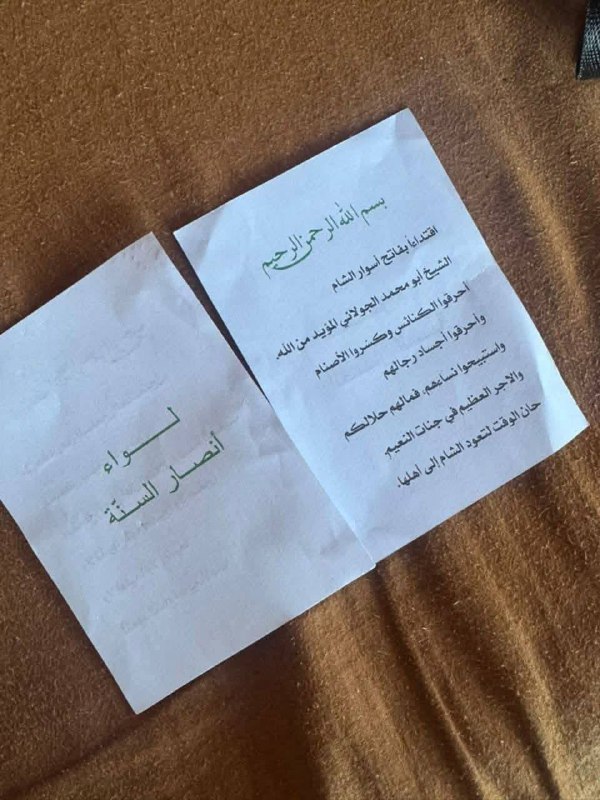 بسم الله الرحمن الرحيم
اقتداءاً بفاتح أسوار الشام
الشيخ أبو محمد الجولاني المؤيد من الله،
أحرقوا الكنائس وكسّروا الأصنام
وأحرقوا أجساد رجالهم
واستبيحوا نساءهم، فمالهم حلالكم
والاجر العظيم في جنات النعيم،
حان الوقت لتعود الشام إلى أهلها.
لـــواء
أنصار السنّة